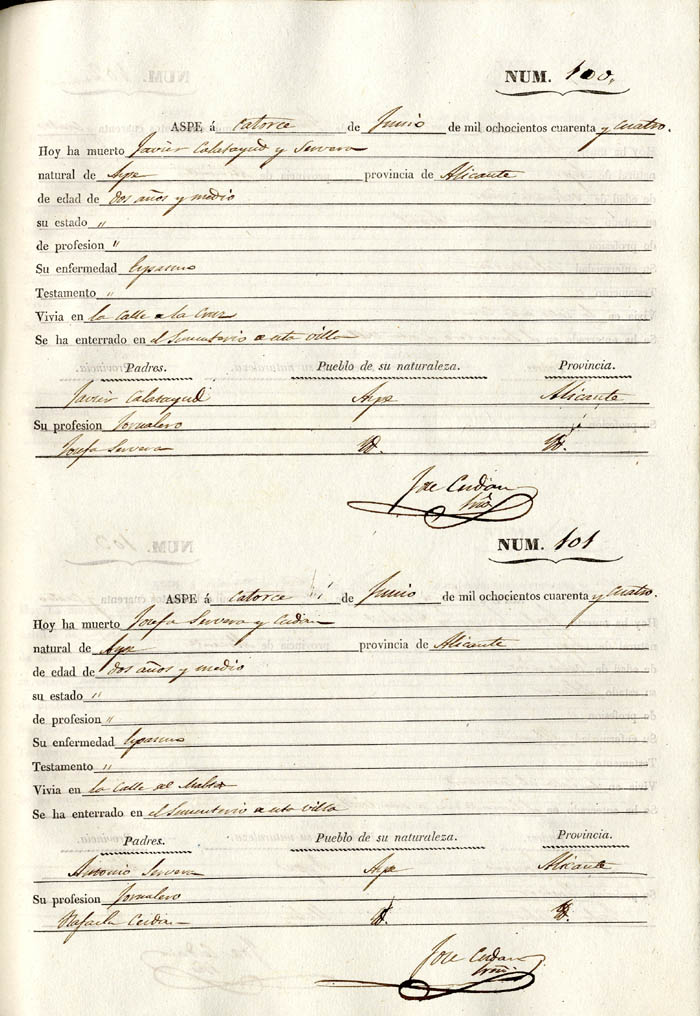 NUM. 100,,
ASPE á catorce de Junio de mil ochocientos cuarenta y cuatro.
Hoy ha muerto Javier Calatayud y Servera
natural de Aspe provincia de Alicante
de edad de dos años y medio
su estado "
de profesion "
Su enfermedad
Testamento "
Vivia en la Calle de la Cruz
Se ha enterrado en el Sementerio de esta Villa
Padres. Pueblo de su naturaleza. Provincia.
Javier Calatayud Aspe Alicante
Su profesion Jornalero
Josefa Servera Id. Id.
Jose Cerdan
NUM. 101
ASPE á catorce de Junio de mil ochocientos cuarenta y cuatro.
Hoy ha muerto Josefa Servera y Cerdan
natural de Aspe provincia de Alicante
de edad de dos años y medio
su estado "
de profesion "
Su enfermedad
Testamento "
Vivia en la Calle del
Se ha enterrado en el Sementerio de esta Villa
Padres. Pueblo de su naturaleza. Provincia.
Antonio Servera Aspe Alicante
Su profesion Jornalero
Rafaela Cerdan Id. Id.
Jose Cerdan